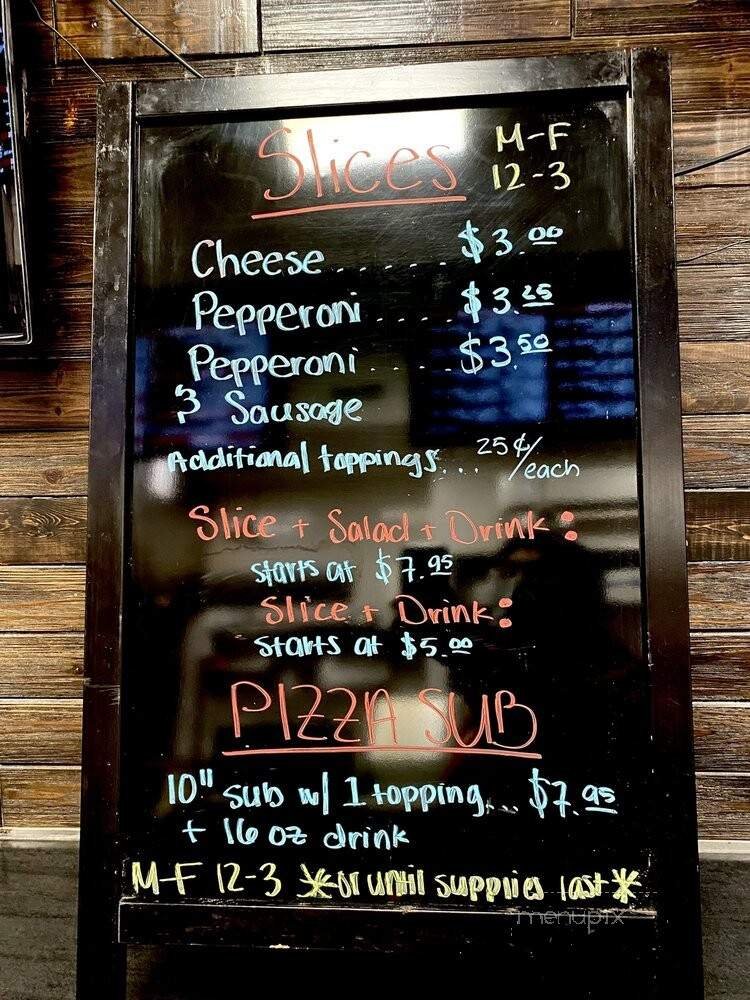 Slices M-F
12-3
Cheese...... $3.00
Pepperoni.... $3.25
Pepperoni..... $3.50
& Sausage
Additional toppings... 25¢/each
Slice + Salad + Drink:
starts at $7.95
Slice + Drink:
starts at $5.00
PIZZA SUB
10" sub w/ 1 topping... $7.95
+ 16 oz drink
M-F 12-3 *or until supplies last*
menupix